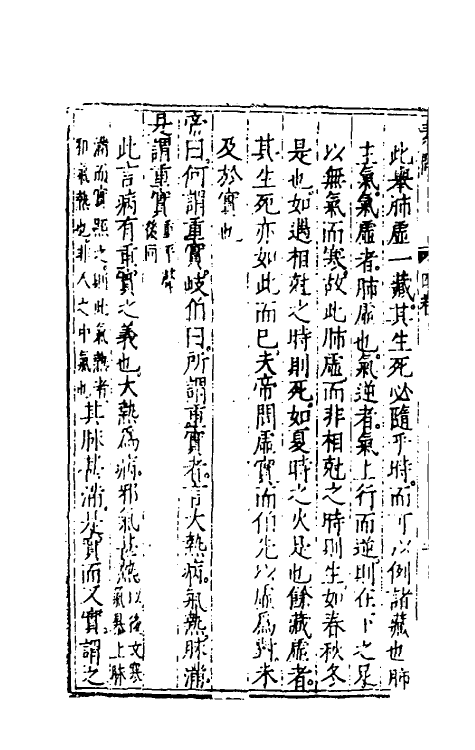 此舉肺虛一藏其生死必隨乎時而可以例諸藏也肺
主氣氣虛者肺虛也氣逆者氣上行而逆則在下之足
以無氣而寒故此肺虛而非相尅之時則生如春秋冬
是也如遇相尅之時則死如夏時之火是也餘藏虛者
其生死亦如此而已夫帝問虛實而伯先以虛爲對未
及於實也
帝曰何謂重實岐伯曰所謂重實者言大熱病氣熱脉滿
是謂重實重平聲後同
此言病有重實之義也大熱爲病邪氣甚熱以後文寒氣暴上脉
滿而實照之則此氣熱者即氣熱也非人之中氣也其脉甚滿是實而又實謂之